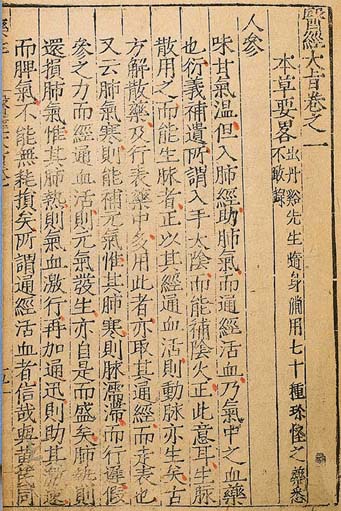 醫經大旨卷之一
本草要畧 出丹谿先生隨身備用七十種珎怪之藥悉不敢錄
人參
味甘氣温但入肺經助肺氣而通經活血乃氣中之血藥
也衍義補遺所謂入手太陰而能補陰火正此意耳生脉
散用之而能生脉者正以其經通血活則動脉亦生矣古
方解散藥及行表藥中多用此者亦取其通經而走表也
又云肺氣寒則能補元氣惟其肺寒則脉濡滯而行遲假
參之力而經通血活則元氣發生亦自是而盛矣肺熱則
還損肺氣惟其肺熱則氣血激行再加通迅則助其
而脾氣不能無耗損矣所謂通經活血者信哉與黃茋同